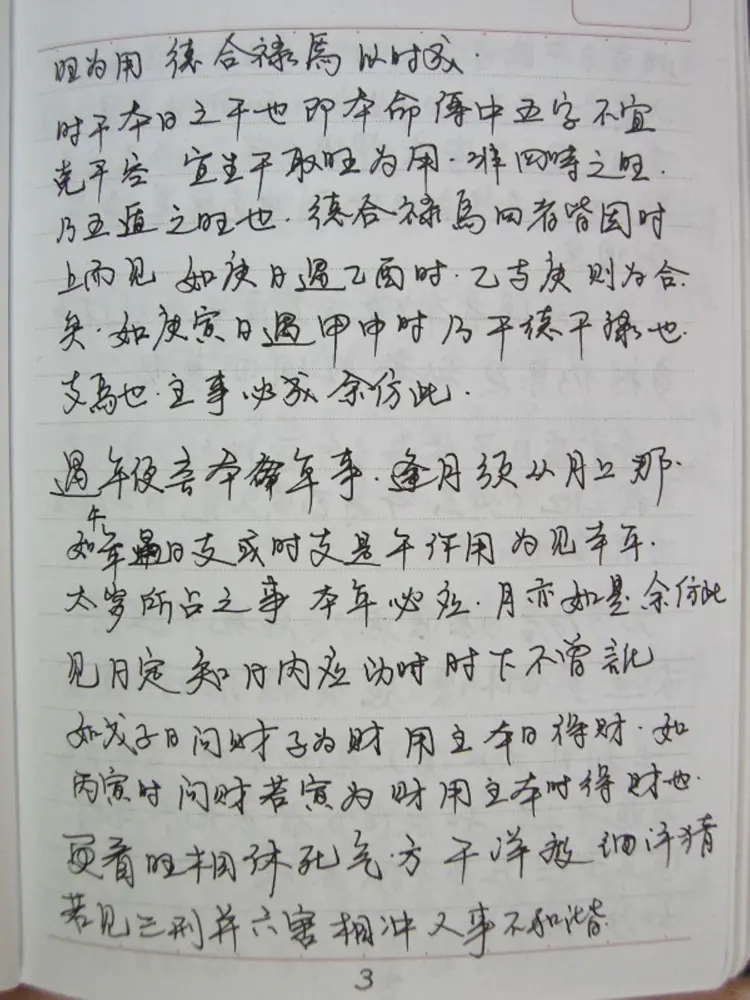 旺为用 德合禄馬以时成.
时干本日之干也即本命傳中五字不宜
克干容 宜生干取旺为用.非四時之旺.
乃五遁之旺也.德合禄馬四者皆因时
上而见 如庚日遇乙酉时.乙与庚则为合
矣.如庚寅日遇甲申时乃干德干禄也.
支馬也.主事必成余仿此.
遇年便言本年事.逢月须从月上那.
如午年日支或时支是午作用为见本年.
太岁所占之事本年必应.月亦如是余仿此
见日定知日内应 时时下不曾訛
如戊子日问财子为财用主本日得财.如
丙寅时问财若寅为财用主本时得财也.
更看旺相休死气.方干详 细评猜
若见三刑并六害相冲又事不和谐.
3